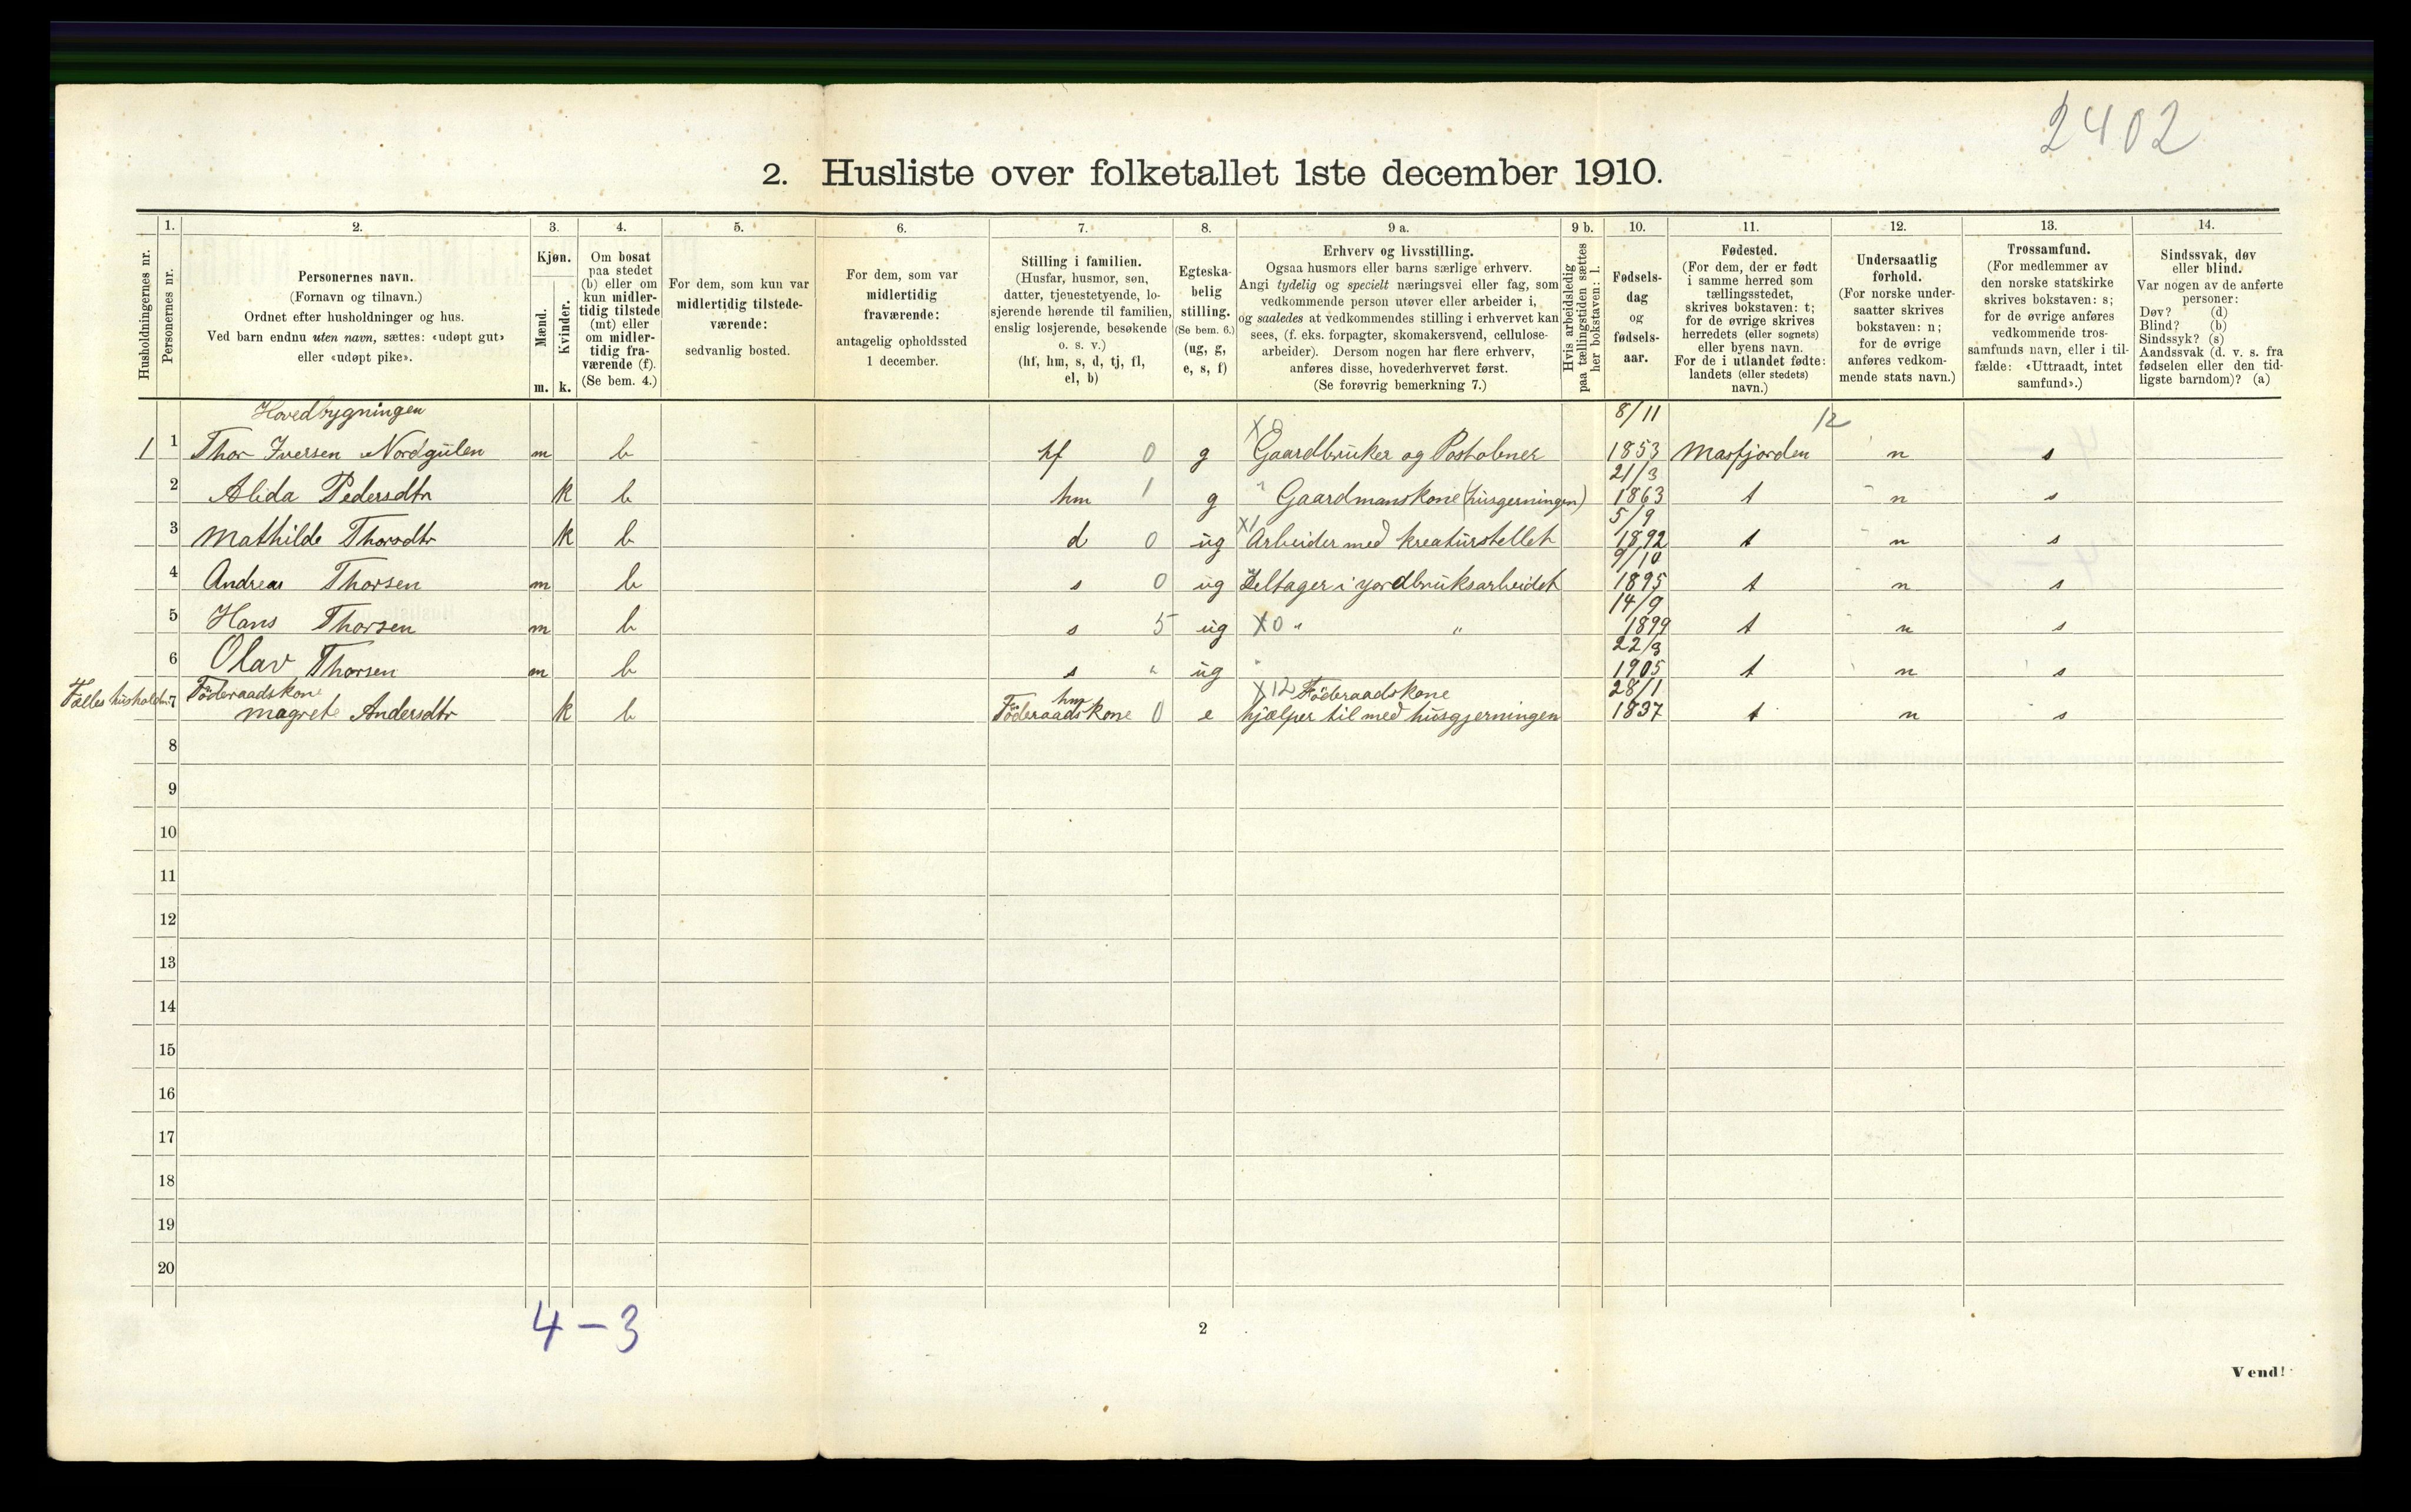 2402
2. Husliste over folketallet 1ste december 1910.
Husholdningernes nr.
1.
Personernes nr.
2.
Personernes navn.
(Fornavn og tilnavn.)
Ordnet efter husholdninger og hus.
Ved barn endnu uten navn, sættes: «udøpt gut»
eller «udøpt pike».
3.
Kjøn.
Mænd.
Kvinder.
m. k.
4.
Om bosat
paa stedet
(b) eller om
kun midler-
tidig tilstede
(mt) eller
om midler-
tidig fra-
værende (f).
(Se bem. 4.)
5.
For dem, som kun var
midlertidig tilstede-
værende:
sedvanlig bosted.
6.
For dem, som var
midlertidig
fraværende:
antagelig opholdssted
1 december.
7.
Stilling i familien.
(Husfar, husmor, søn,
datter, tjenestetyende, lo-
sjerende hørende til familien,
enslig losjerende, besøkende
o. s. v.)
(hf, hm, s, d, tj, fl,
el, b)
8.
Egteska-
belig
stilling.
(Se bem. 6.)
(ug, g,
e, s, f)
9 a.
Erhverv og livsstilling.
Ogsaa husmors eller barns særlige erhverv.
Angi tydelig og specielt næringsvei eller fag, som
vedkommende person utøver eller arbeider i,
og saaledes at vedkommendes stilling i erhvervet kan
sees, (f. eks. forpagter, skomakersvend, cellulose-
arbeider). Dersom nogen har flere erhverv,
anføres disse, hovederhvervet først.
(Se forøvrig bemerkning 7.)
9 b.
Hvis arbeidsledig
paa tællingstiden sættes
her bokstaven: l.
10.
Fødsels-
dag
og
fødsels-
aar.
11.
Fødested.
(For dem, der er født
i samme herred som
tællingsstedet,
skrives bokstaven: t;
for de øvrige skrives
herredets (eller sognets)
eller byens navn.
For de i utlandet fødte:
landets (eller stedets)
navn.)
12.
Undersaatlig
forhold.
(For norske under-
saatter skrives
bokstaven: n;
for de øvrige
anføres vedkom-
mende stats navn.)
13.
Trossamfund.
(For medlemmer av
den norske statskirke
skrives bokstaven: s;
for de øvrige anføres
vedkommende tros-
samfunds navn, eller i til-
fælde: «Uttraadt, intet
samfund».)
14.
Sindssvak, døv
eller blind.
Var nogen av de anførte
personer:
Døv? (d)
Blind? (b)
Sindssyk? (s)
Aandssvak (d. v. s. fra
fødselen eller den tid-
ligste barndom)? (a)
Hovedbygningen 8/11 12
1 1 Thor Iversen Nordgulen m b hf 0 g Gaardbruker og Postobner 1853 Masfjorden n s
21/3
2 Alida Pedersdtr k b hm 1 g " Gaardmanskone (husgerningen) 1863 t n s
5/9
3 Mathilde Thorsdtr k b d 0 ug X1 Arbeider med kreaturstellet 1892 t n s
9/10
4 Andreas Thorsen m b s 0 ug Deltager i jordbruksarbeidet 1895 t n s
14/9
5 Hans Thorsen m b s 5 ug X0 " " 1899 t n s
22/3
6 Olav Thorsen m b s " ug " 1905 t n s
Fælles husholdn. Föderaadskone hm X12 Föderaadskone 28/1
7 Magrete Andersdtr k b Föderaadskone 0 e hjælper til med husgjerningen 1837 t n s
8
9
10
11
12
13
14
15
16
17
18
19
20
4-3
2
Vend!